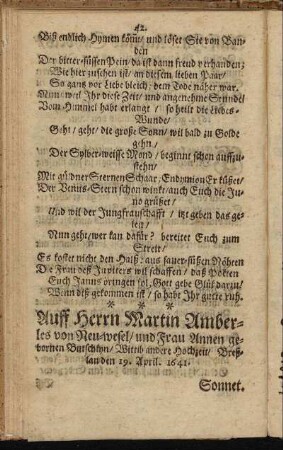 42.
Biß endlich Hymen kömt/ und löset Sie von Ban-
den
Der bitter-süssen Pein/ da ist dann freud verhanden;
Wie hier zusehen ist/ an diesem lieben Paar/
So gantz vor Liebe bleich/ dem Tode näher war.
Nun/ weil Ihr diese Zeit/ und angenehme Stunde/
Vom Himmel habt erlangt/ so heilt die Liebes-
Wunde/
Geht/ geht/ die große Sonn/ wil bald zu Golde
gehn/
Der Sylber-weisse Mond/ beginnt schon auffzu-
stehn/
Mit güldner Sternen Schaar/ Endymion Er küßet/
Der Venus-Stern schon winkt/ auch Euch die Ju-
no grüßet/
Und wil der Jungfrauschafft/ itzt geben das ge-
leit/
Nun geht/ wer kan dafür? bereitet Euch zum
Streit/
Es kostet nicht den Halß: aus sauer-süßen Nöhten
Die Frau deß Jupiters wil schaffen/ daß Poëten
Euch Janus bringen sol, Gott gebe Glük darzu/
Wenn diß gekommen ist/ so habt Ihr gutte ruh.
* * *
Auff Herrn Martin Amber-
les von Neu-wesel/ und Frau Annen ge-
bornen Butschkyn/ Wittib andere Hochzeit/ Breß-
lau den 29. April. 1641.
Sonnet.